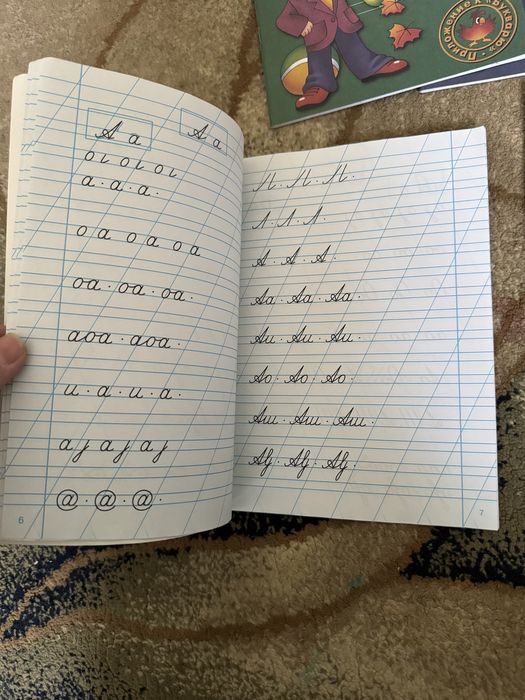 Приложение к «Букварю»
А а А а
а · а · а ·
о а о а о а
оа · оа · оа ·
аоа · аоа ·
и · а · и · а ·
@ · @ · @ ·
6
Л · Л · Л ·
А · А · А ·
Аа · Аа · Аа ·
Аи · Аи · Аи ·
Ао · Ао · Ао ·
Аш · Аш · Аш ·
7